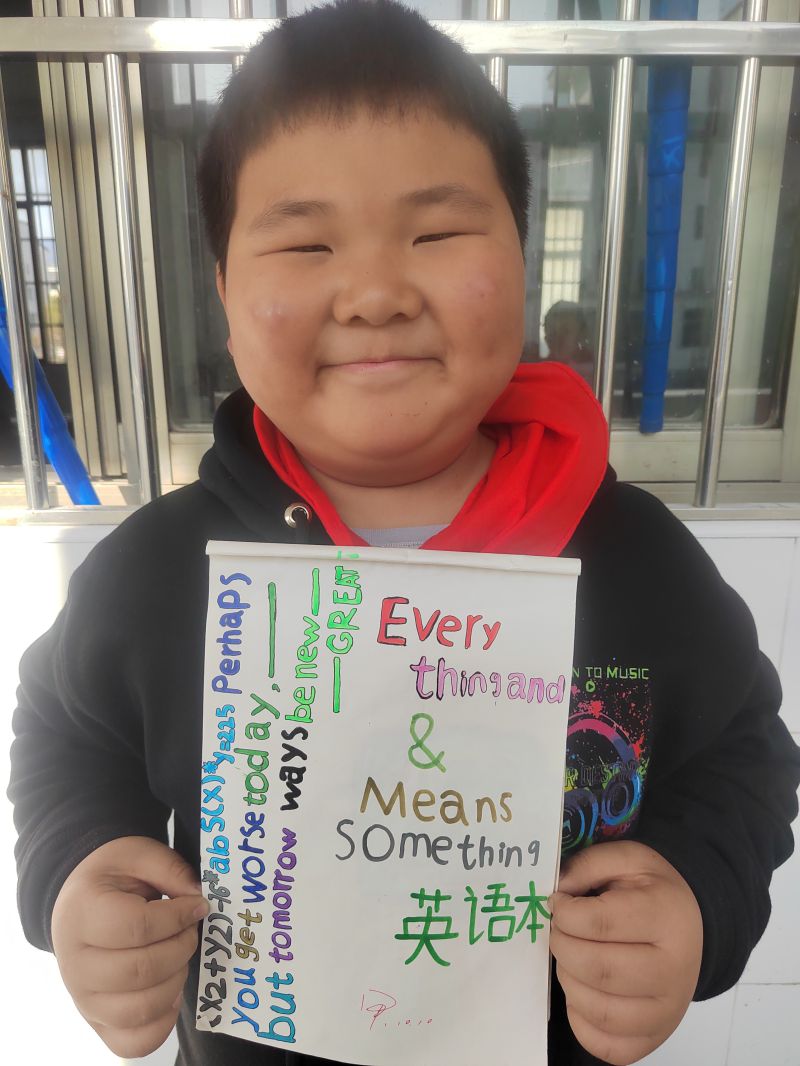 Every
thingand
&
Means
Something
英语本
(x2+y2)-16*ab5(x)*y=225 Perhaps
you get worse today,
but tomorrow ways be new
GREAT!
N TO MUSIC